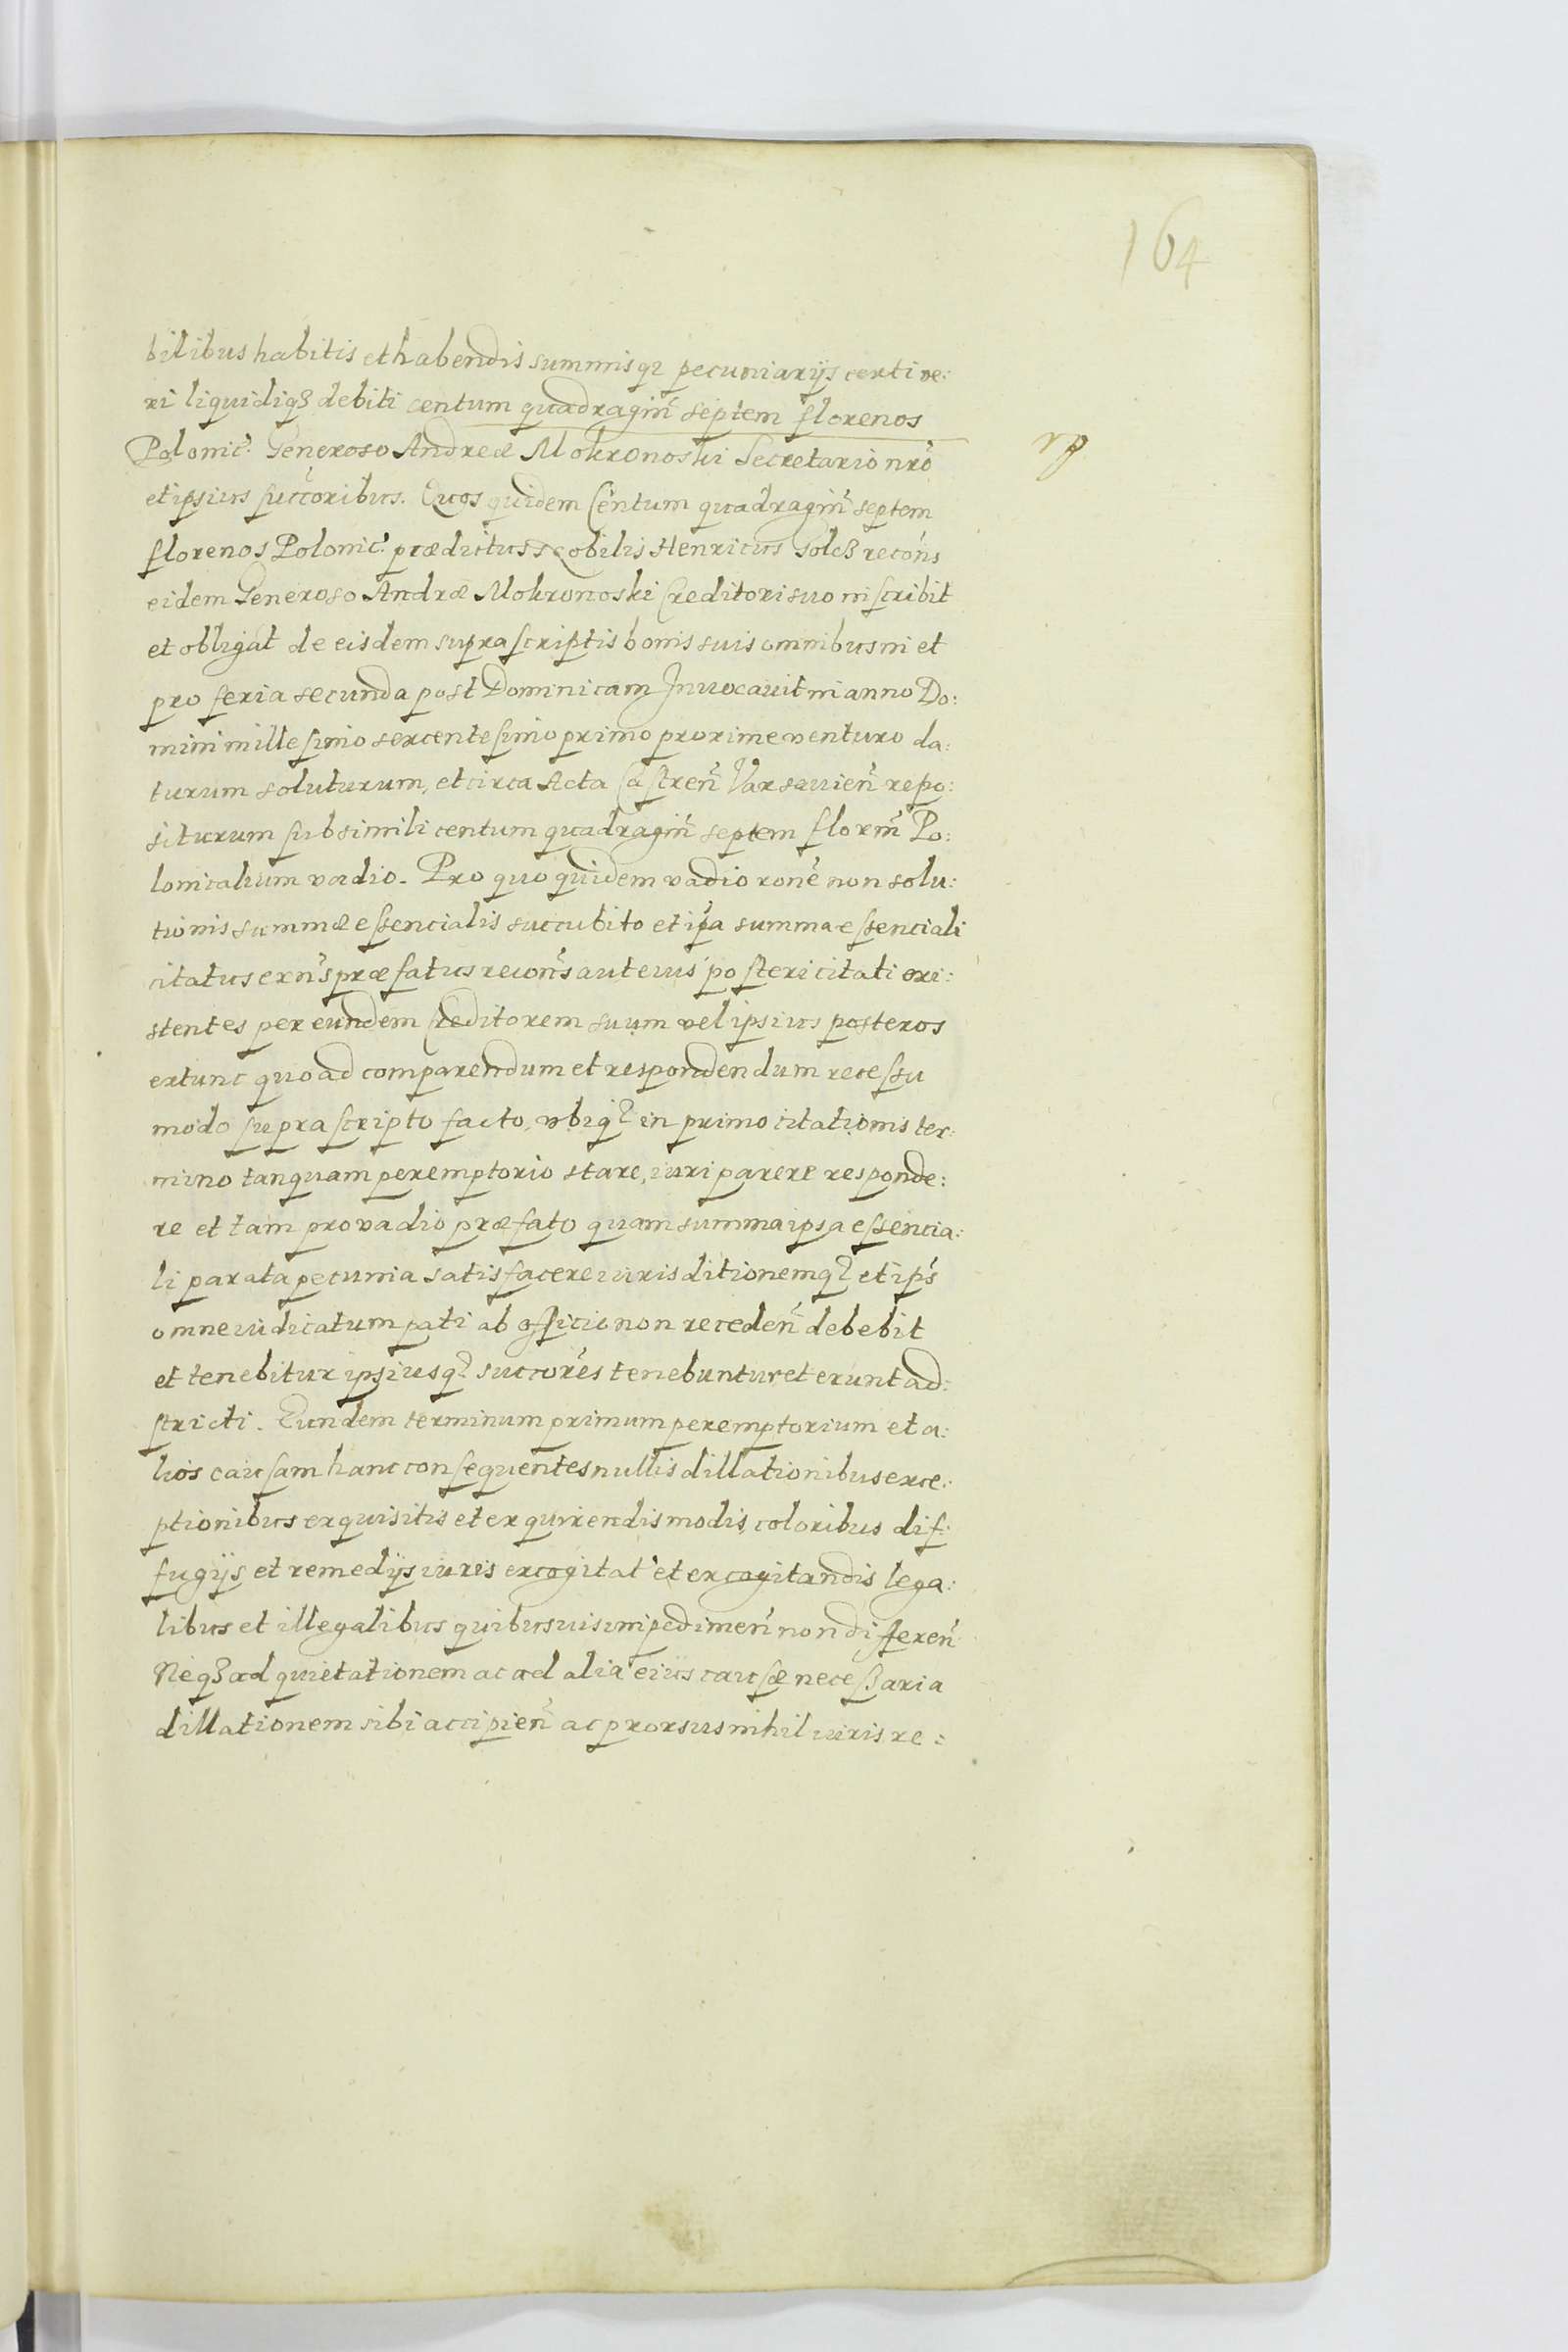 164
bilibus habitis et habendis summisq₃ pecuniarijs certi ve:
ri liquidiq₃ debiti centum quadragin̄ septem florenos
Polonic̄: Generoso Andreæ Mokronoski Secretario nr̄o
et ipsius succ̄oribus. Quos quidem Centum quadragin̄ septem
florenos Polonic̄: prædictus Nobilis Henricus Solcz recōns
eidem Generoso Andræ Mokronoski Creditori suo inscribit
et obligat de eisdem suprascriptis bonis suis omnibus in et
pro feria secunda post Dominicam Inuocauit in anno Do:
mini millesimo sexcentesimo primo proxime venturo da:
turum soluturum, et circa Acta Castren̄ Varsauien̄ repo:
siturum sub simili centum quadragin̄ septem floren̄ Po:
lonicalium vadio. Pro quo quidem vadio ron̄e non solu:
tionis summæ essencialis succubito et ip̄a summa essenciali
citatus exn̄s præfatus recon̄s aut eius posteri citati exi:
stentes per eundem Creditorem suum vel ipsius posteros
extunc quo ad comparendum et respondendum recessu
modo suprascripto facto, vbiq₃ in primo citationis ter:
mino tanquam peremptorio stare, iuri parere responde:
re et tam pro vadio præfato quam summa ipsa essencia:
li parata pecunia satisfacere iurisditionemq₃ et ip̄s
omne iudicatum pati ab officio non receden̄ debebit
et tenebitur ipsiusq₃ succor̄es tenebuntur et erunt ad:
stricti. Eundem terminum primum peremptorium et a:
lios causam hanc consequentes nullis dillationibus exce:
ptionibus exquisitis et exquirendis modis coloribus dif:
fugijs et remedijs iuris excogitat̄ et excogitandis lega:
libus et illegalibus quibusuis impedimen̄ non differen̄
Neq₃ ad quietationem ac ad alia eius causæ necessaria
dillationem sibi accipien̄ ac prorsus nihil iuris re: